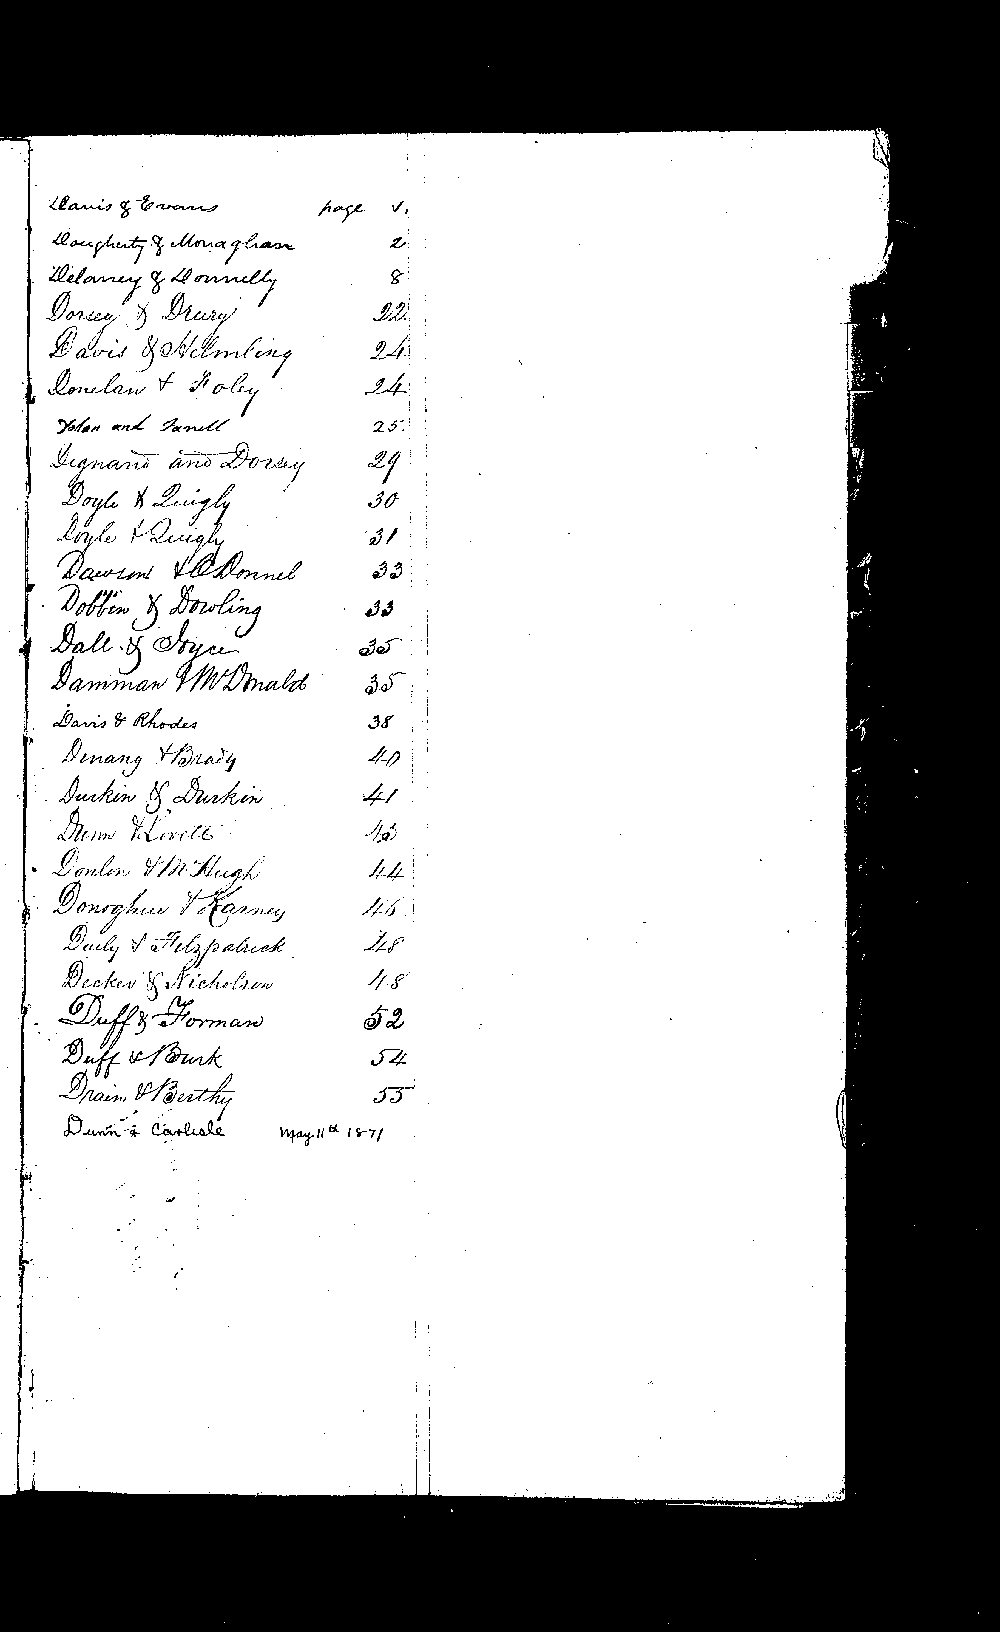 Davis & Evans page 1.
Dougherty & Monaghan 2
Delaney & Donnelly 8
Dorsey & Drury 22
Davis & Helmling 24
Donelan & Foley 24
and 25
and Dorsey 29
Doyle & Quigly 30
Doyle & Quigly 31
Dawson & O'Donnel 33
Dobbin & Dowling 33
Dall & Joyce 35
Damman & McDonald 35
Davis & Rhodes 38
Denang & Brady 40
Durkin & Durkin 41
Dunn & 43
Donlon & McHugh 44
Donoghue & Karney 46
Daily & Fitzpatrick 48
Decker & Nicholson 48
Duff & Forman 52
Duff & Burk 54
Drain & Berthy 55
Dunn & Carlisle May 11th 1871